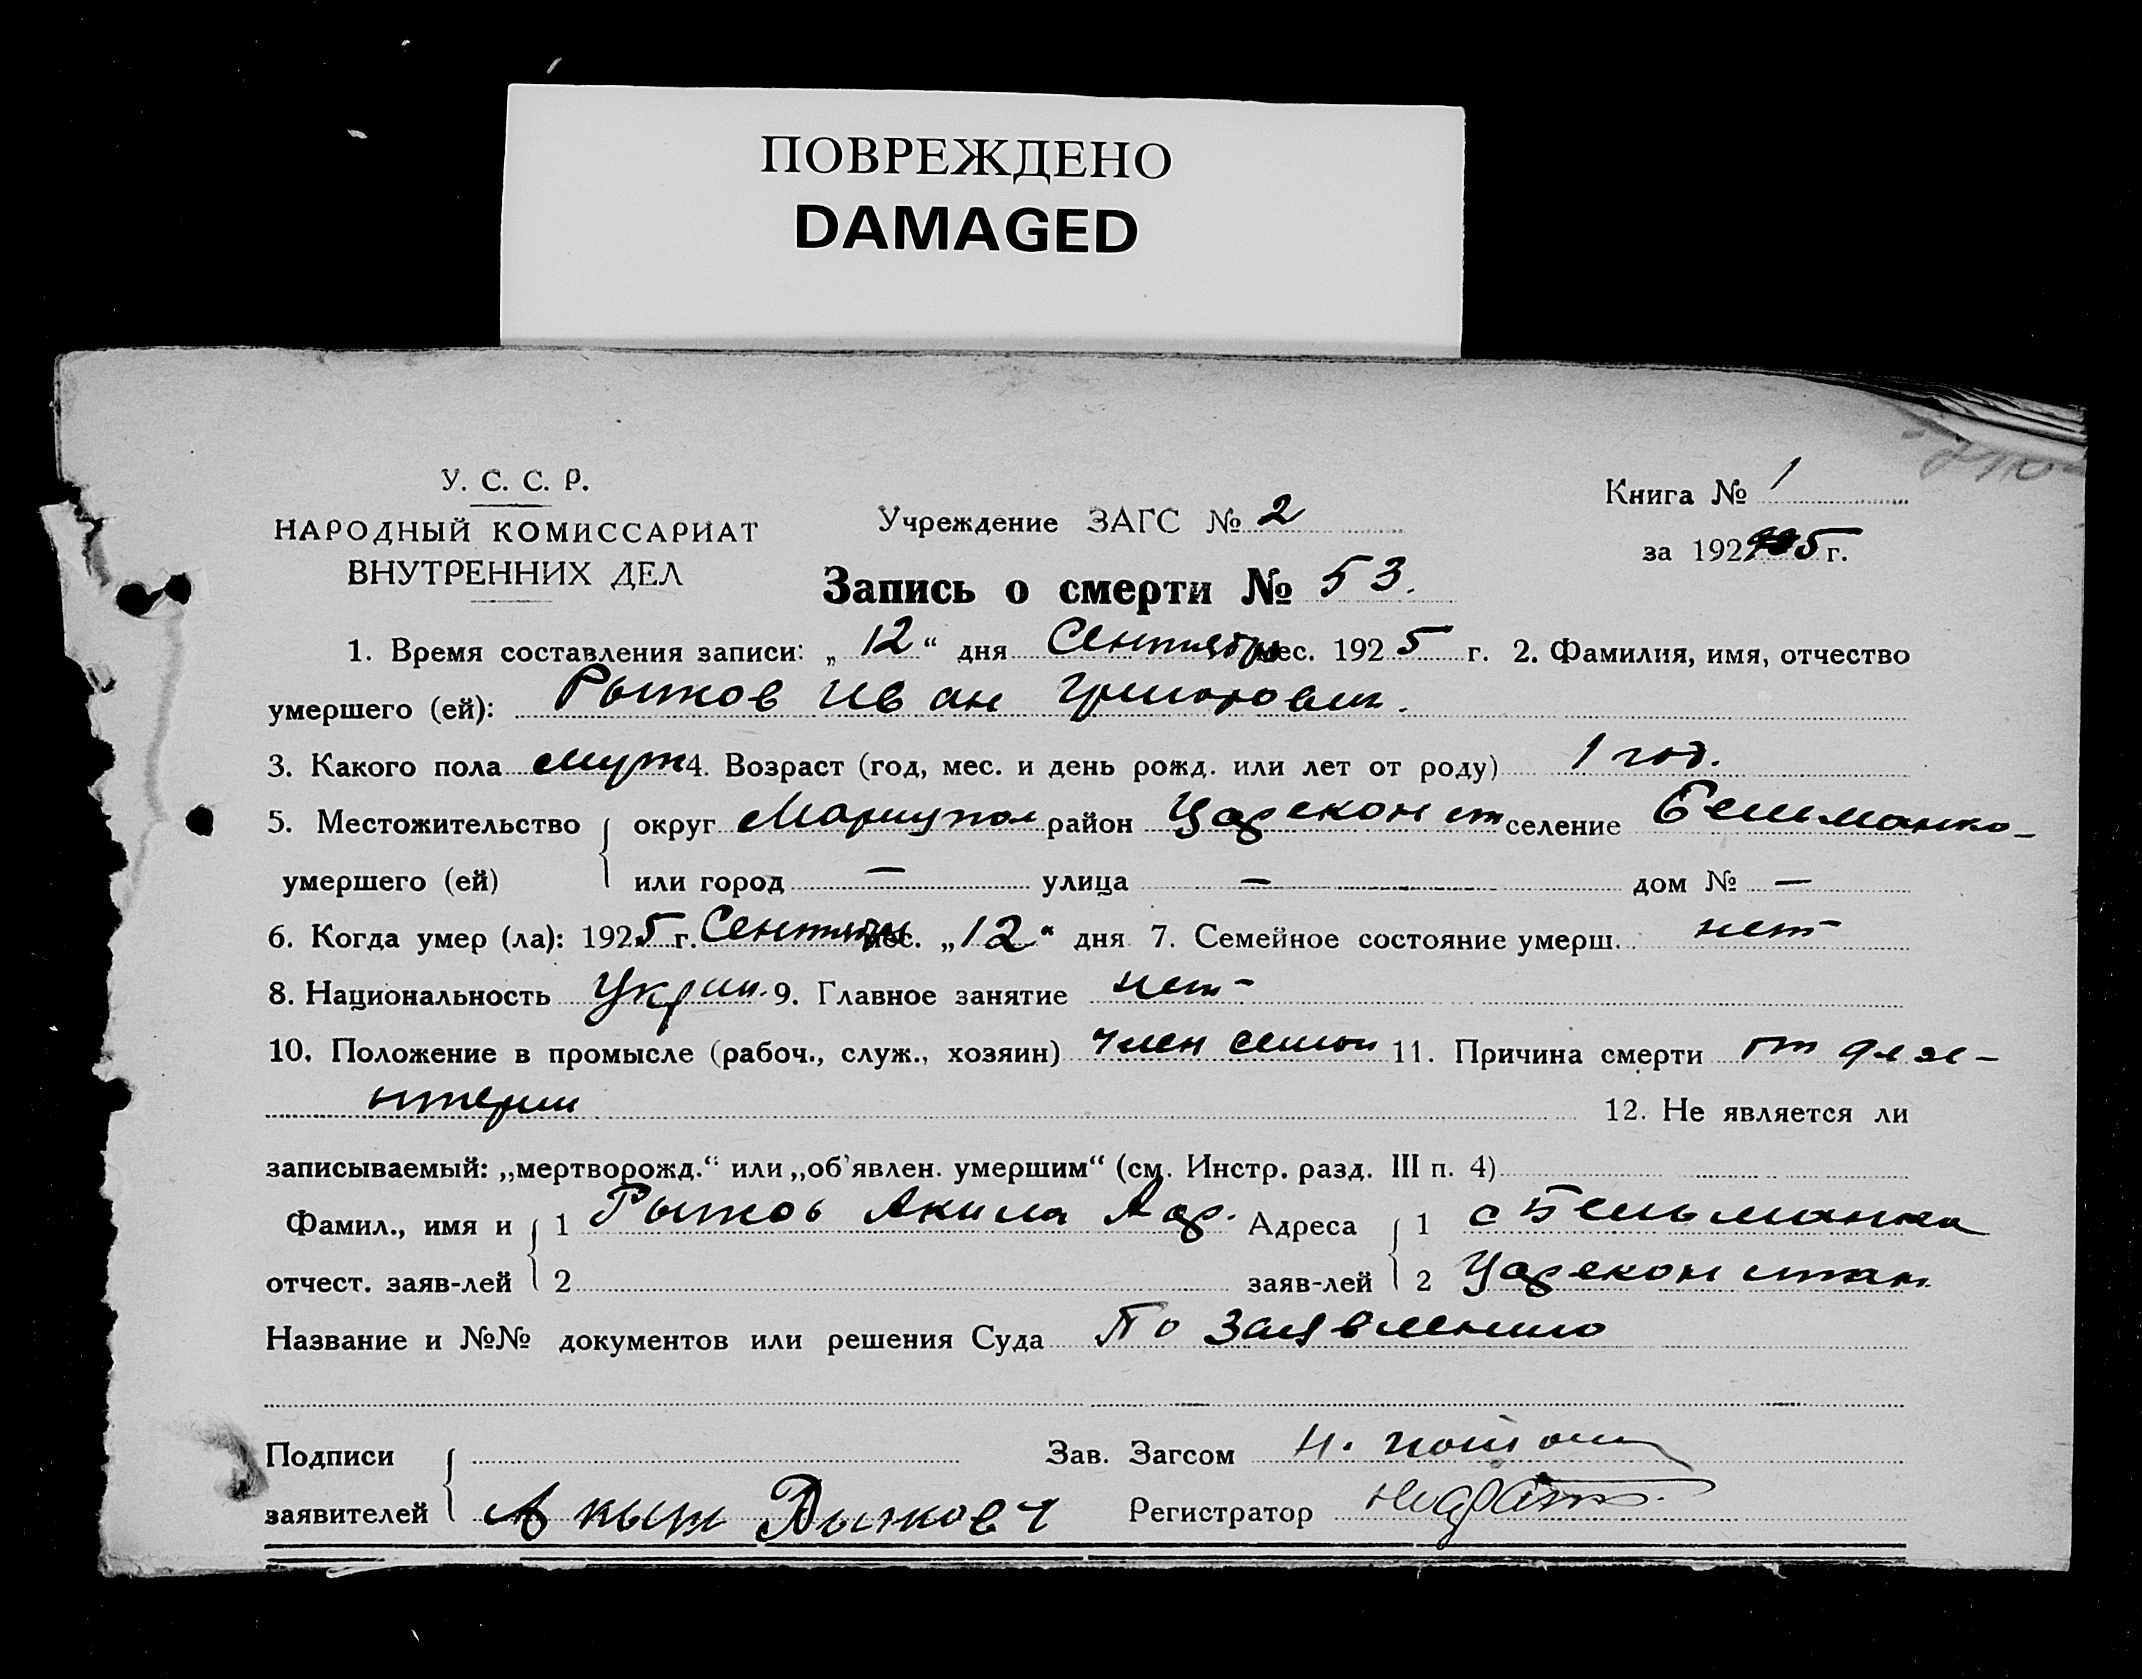 ПОВРЕЖДЕНО
DAMAGED
У. С. С. Р.
НАРОДНЫЙ КОМИССАРИАТ
ВНУТРЕННИХ ДЕЛ
Учреждение ЗАГС № 2
Книга № 1
за 1925 г.
Запись о смерти № 53.
1. Время составления записи: „12“ дня Сентября мес. 1925 г. 2. Фамилия, имя, отчество
умершего (ей): Рыжков Иван Григорович.
3. Какого пола муж 4. Возраст (год, мес. и день рожд. или лет от роду) 1 год.
5. Местожительство умершего (ей) { округ Мариупол район Царекост селение Бельманка-
или город — улица — дом № —
6. Когда умер (ла): 1925 г. Сентября мес. „12“ дня 7. Семейное состояние умерш. нет
8. Национальность Украин. 9. Главное занятие нет
10. Положение в промысле (рабоч., служ., хозяин) член семьи 11. Причина смерти от дизе-
нтерии 12. Не является ли
записываемый: „мертворожд.“ или „об'явлен. умершим“ (см. Инстр. разд. III п. 4)
Фамил., имя и отчест. заяв-лей { 1 Рыжков Акила Адреса заяв-лей { 1 с Бельманка
2 2 Царекон
Название и №№ документов или решения Суда По заявлению
Подписи
Зав. Загсом
заявителей Рыжков
Регистратор